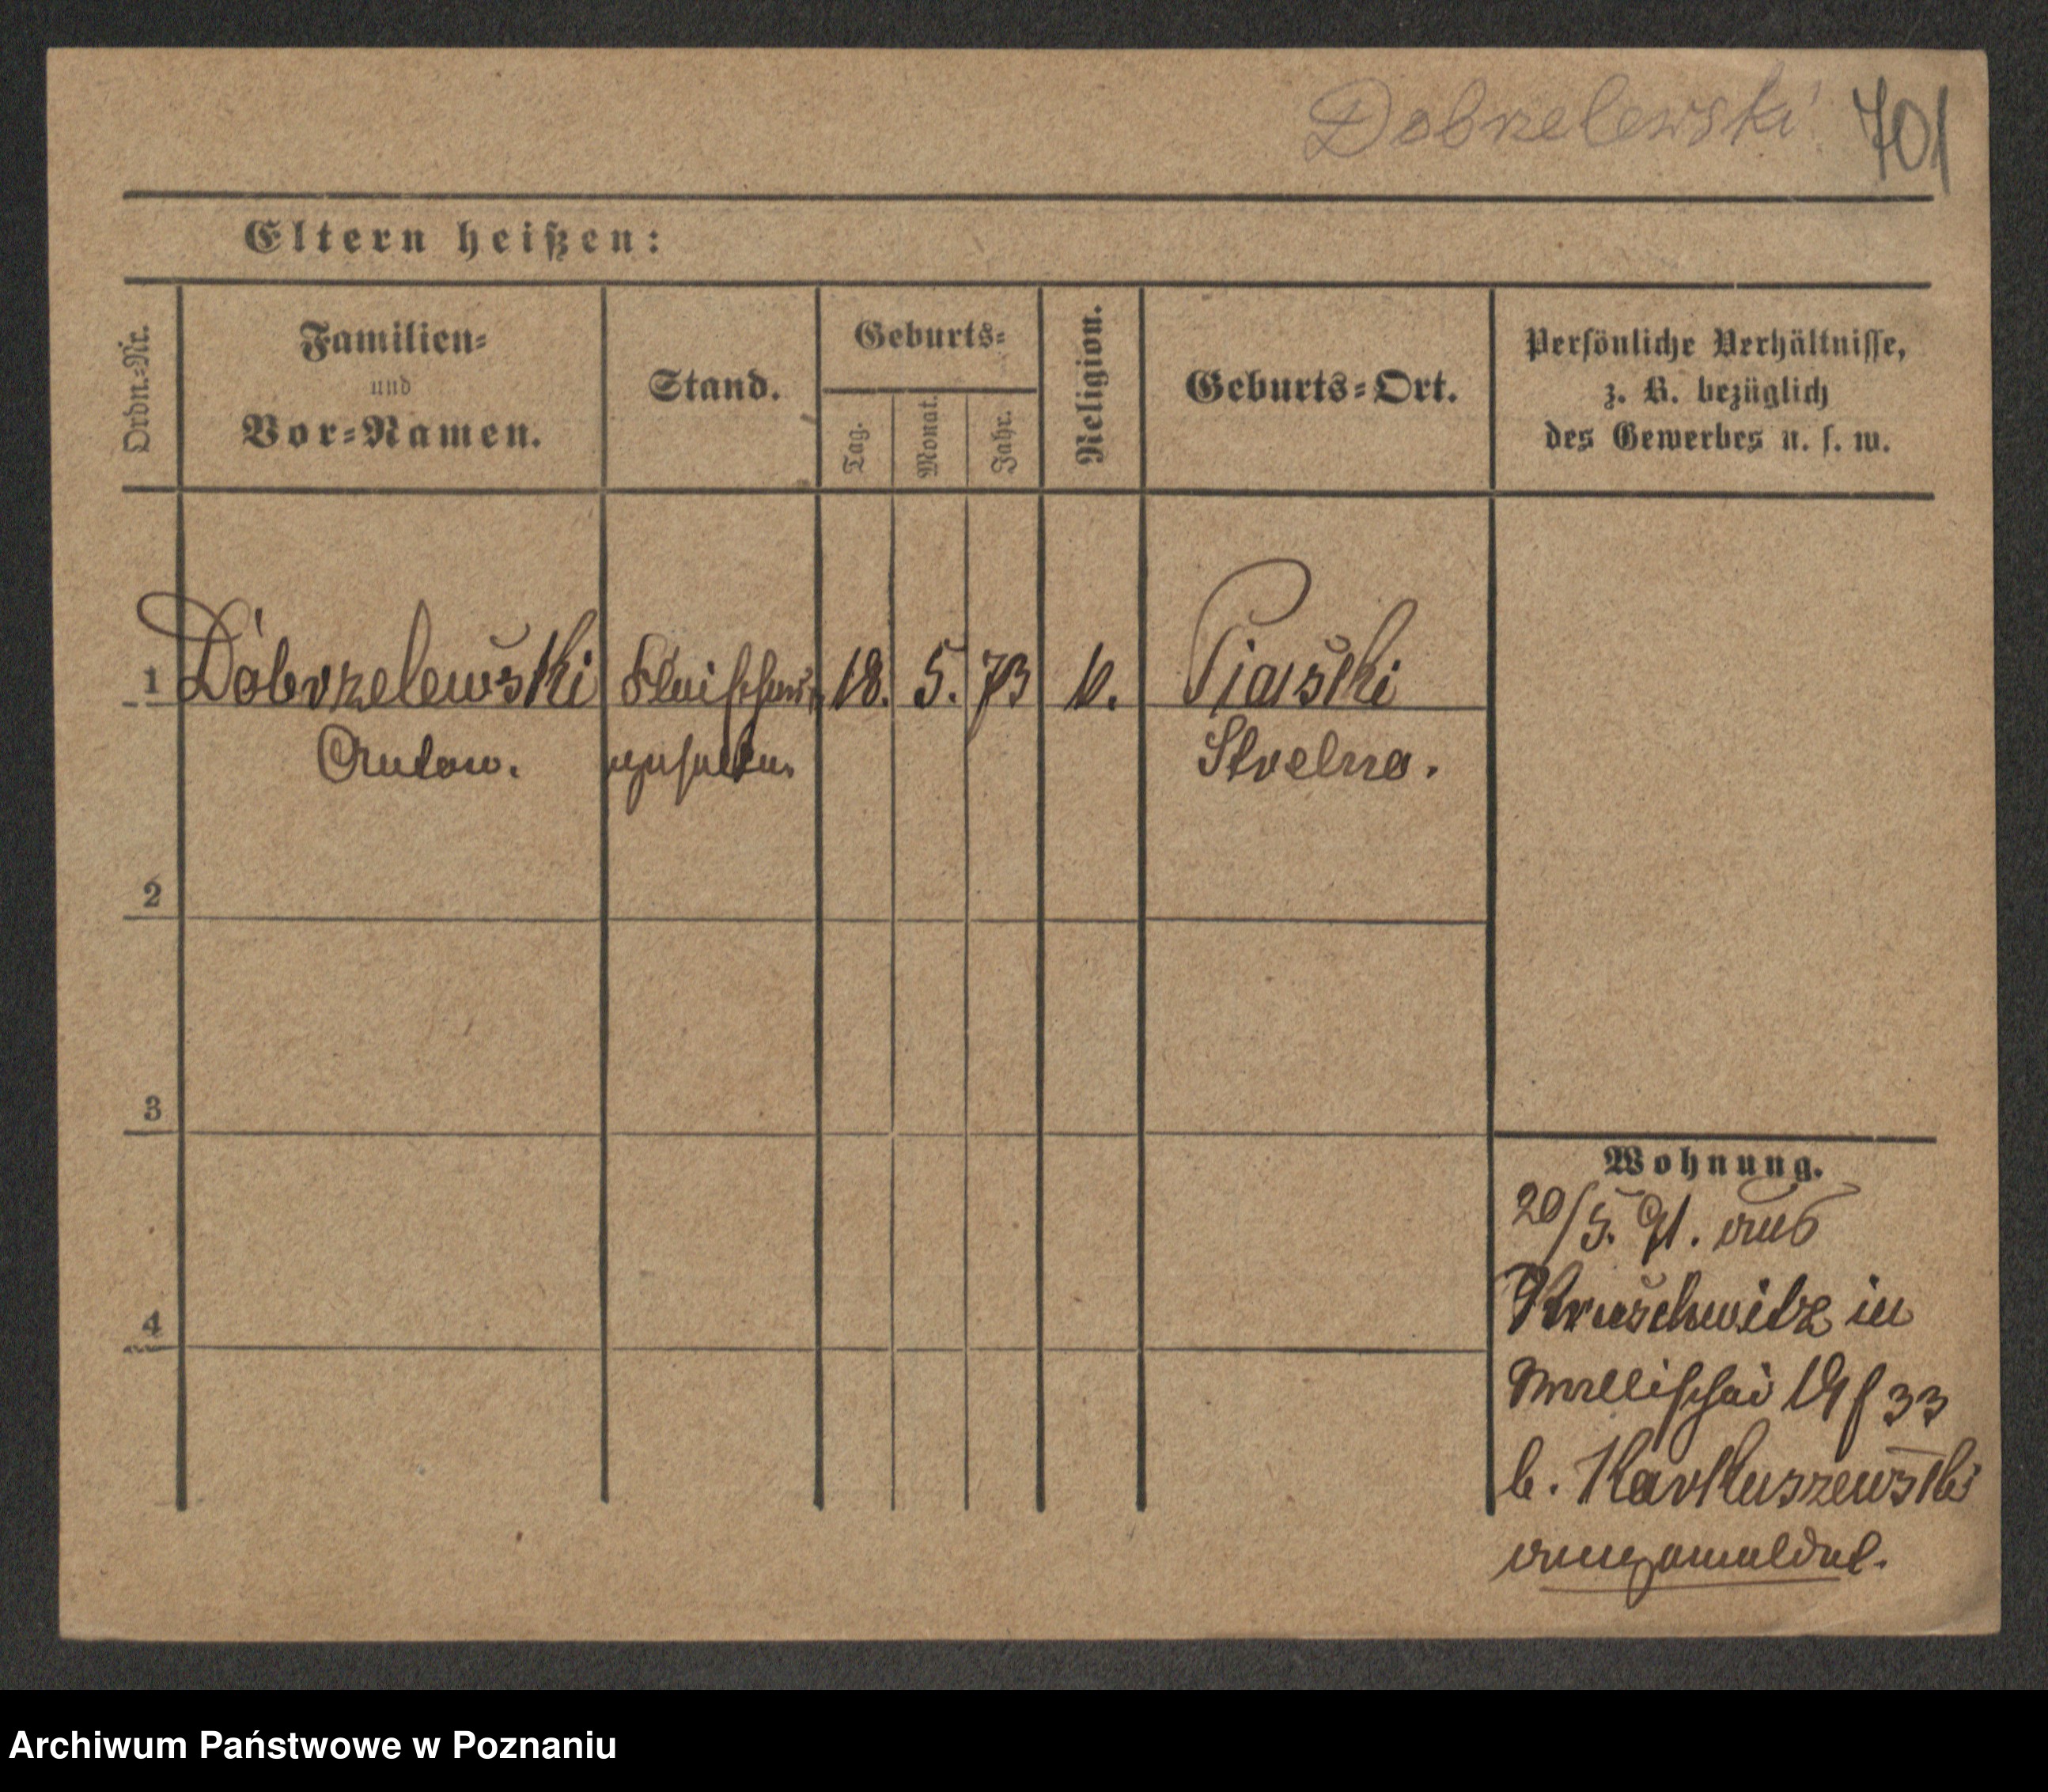 Dobrzelewski 701
Eltern heißen:
Ordn.-Nr.
Familien-
und
Vor-Namen.
Stand.
Geburts-
Tag.
Monat.
Jahr.
Religion.
Geburts-Ort.
Persönliche Verhältnisse,
z. B. bezüglich
des Gewerbes u. s. w.
1 Dobrzelewski Fleischer 18. 5. 73 k. Piaski
Anton. geselle. Strelno.
2
3
4
Wohnung.
20/5. 91. aus
Kruschwitz in
Wallischei 
b. Karkuszewski
angemeldet.
Archiwum Państwowe w Poznaniu